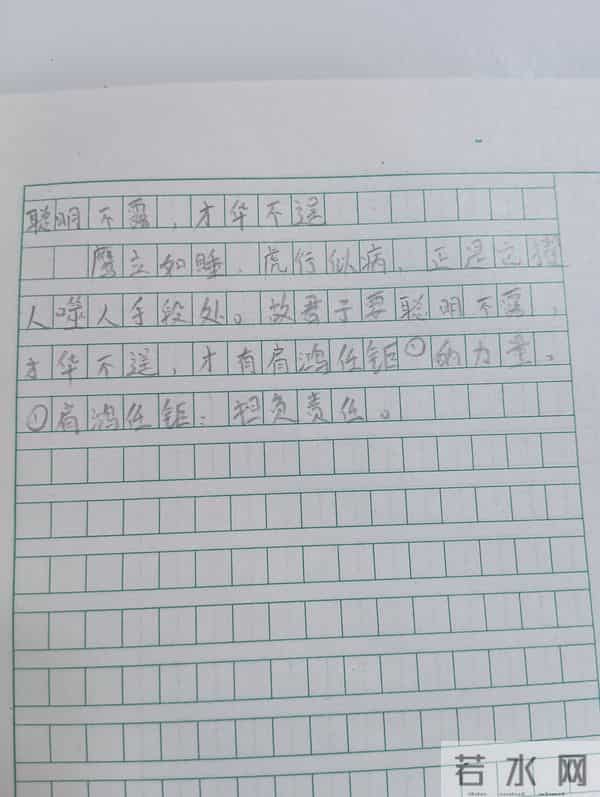 聪明不露,才华不逞
鹰立如睡,虎行似病,正是它攫
人噬人手段处。故君子要聪明不露,
才华不逞,才有肩鸿任钜①的力量。
①肩鸿任钜:担负责任。
若水网